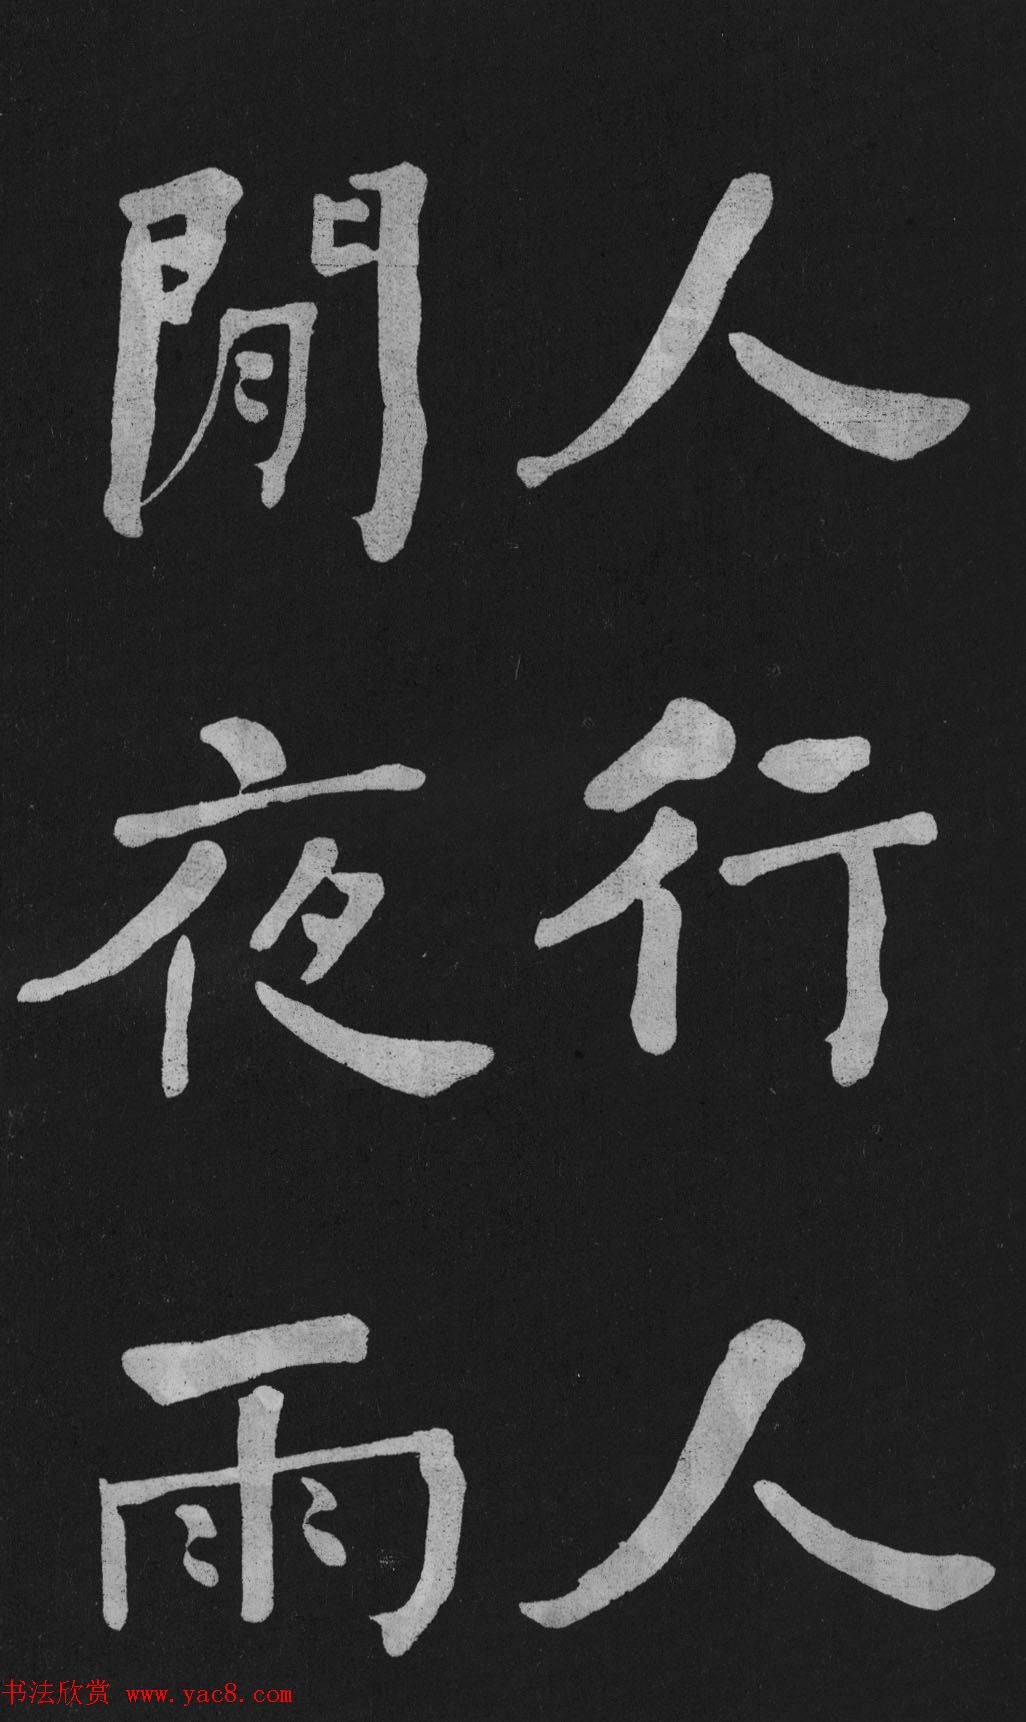 人行人
閒夜雨
书法欣赏 www.yac8.com